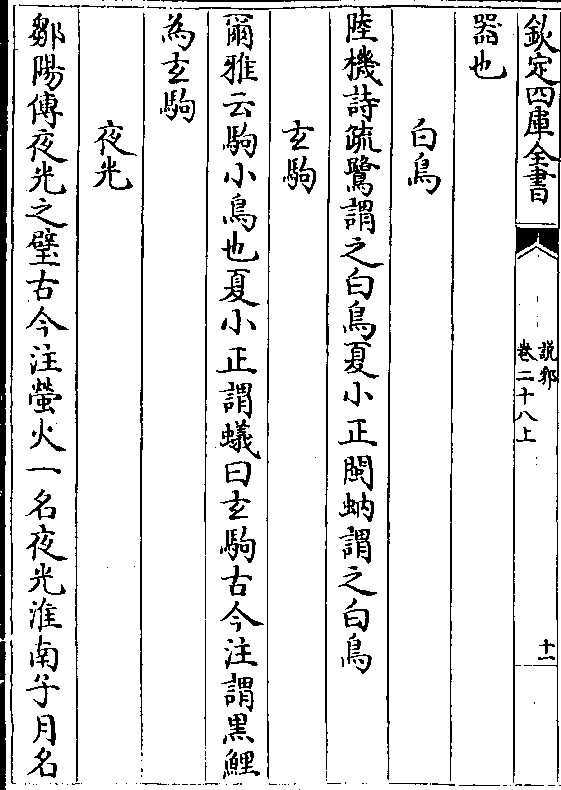 欽定四庫全書
說郛
卷二十八上
十一
器也
白鳥
陸機詩疏鷺謂之白鳥夏小正閩蚋謂之白鳥
玄駒
爾雅云駒小鳥也夏小正謂蟻曰玄駒古今注謂黑鯉
為玄駒
夜光
鄒陽傳夜光之璧古今注螢火一名夜光淮南子月名